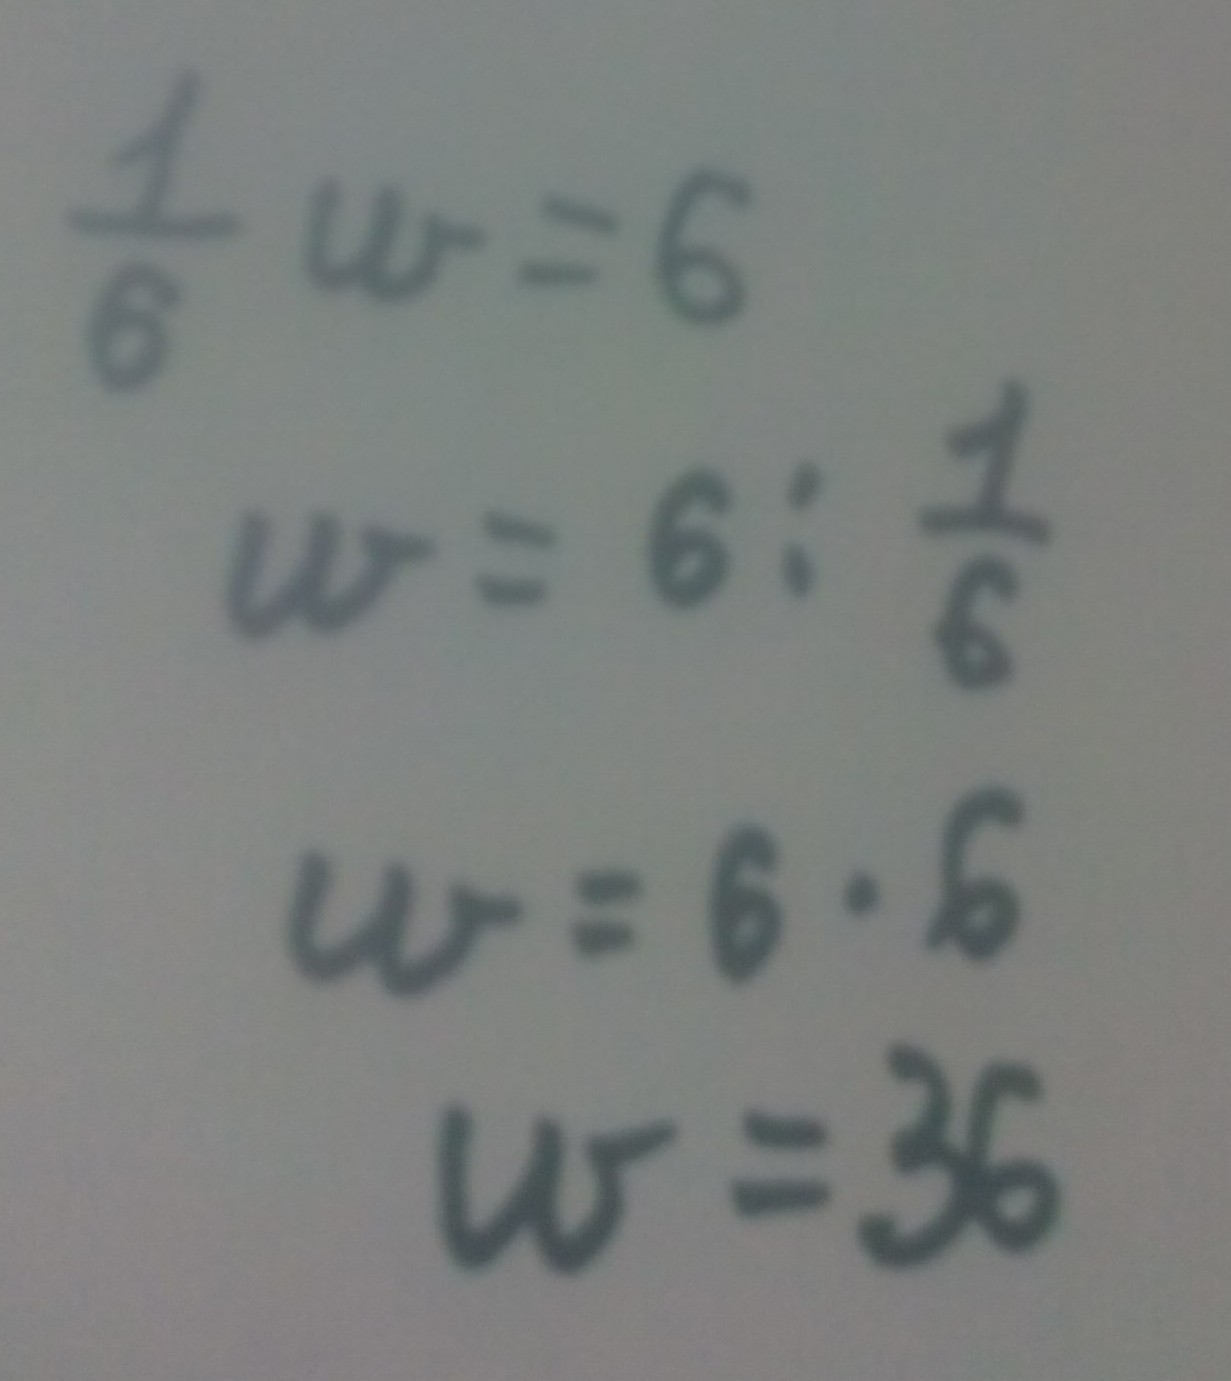 1/6 w = 6
w = 6 : 1/6
w = 6 · 6
w = 36